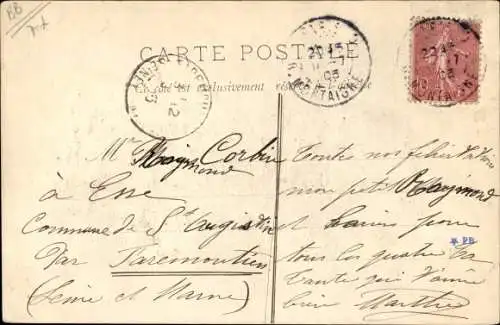 CARTE POSTALE
Ce côté est exclusivement rés
Mr Raymond Corbin
à Esse
Commune de St Augustin
Par Faremoutiers
(Seine et Marne)
Toutes nos félicitations
mon petit Raymond
et baisers pour
tous les quatre
Tante qui t'aime
bien Marthe
R. MONTAIGNE
MONTAIGNE